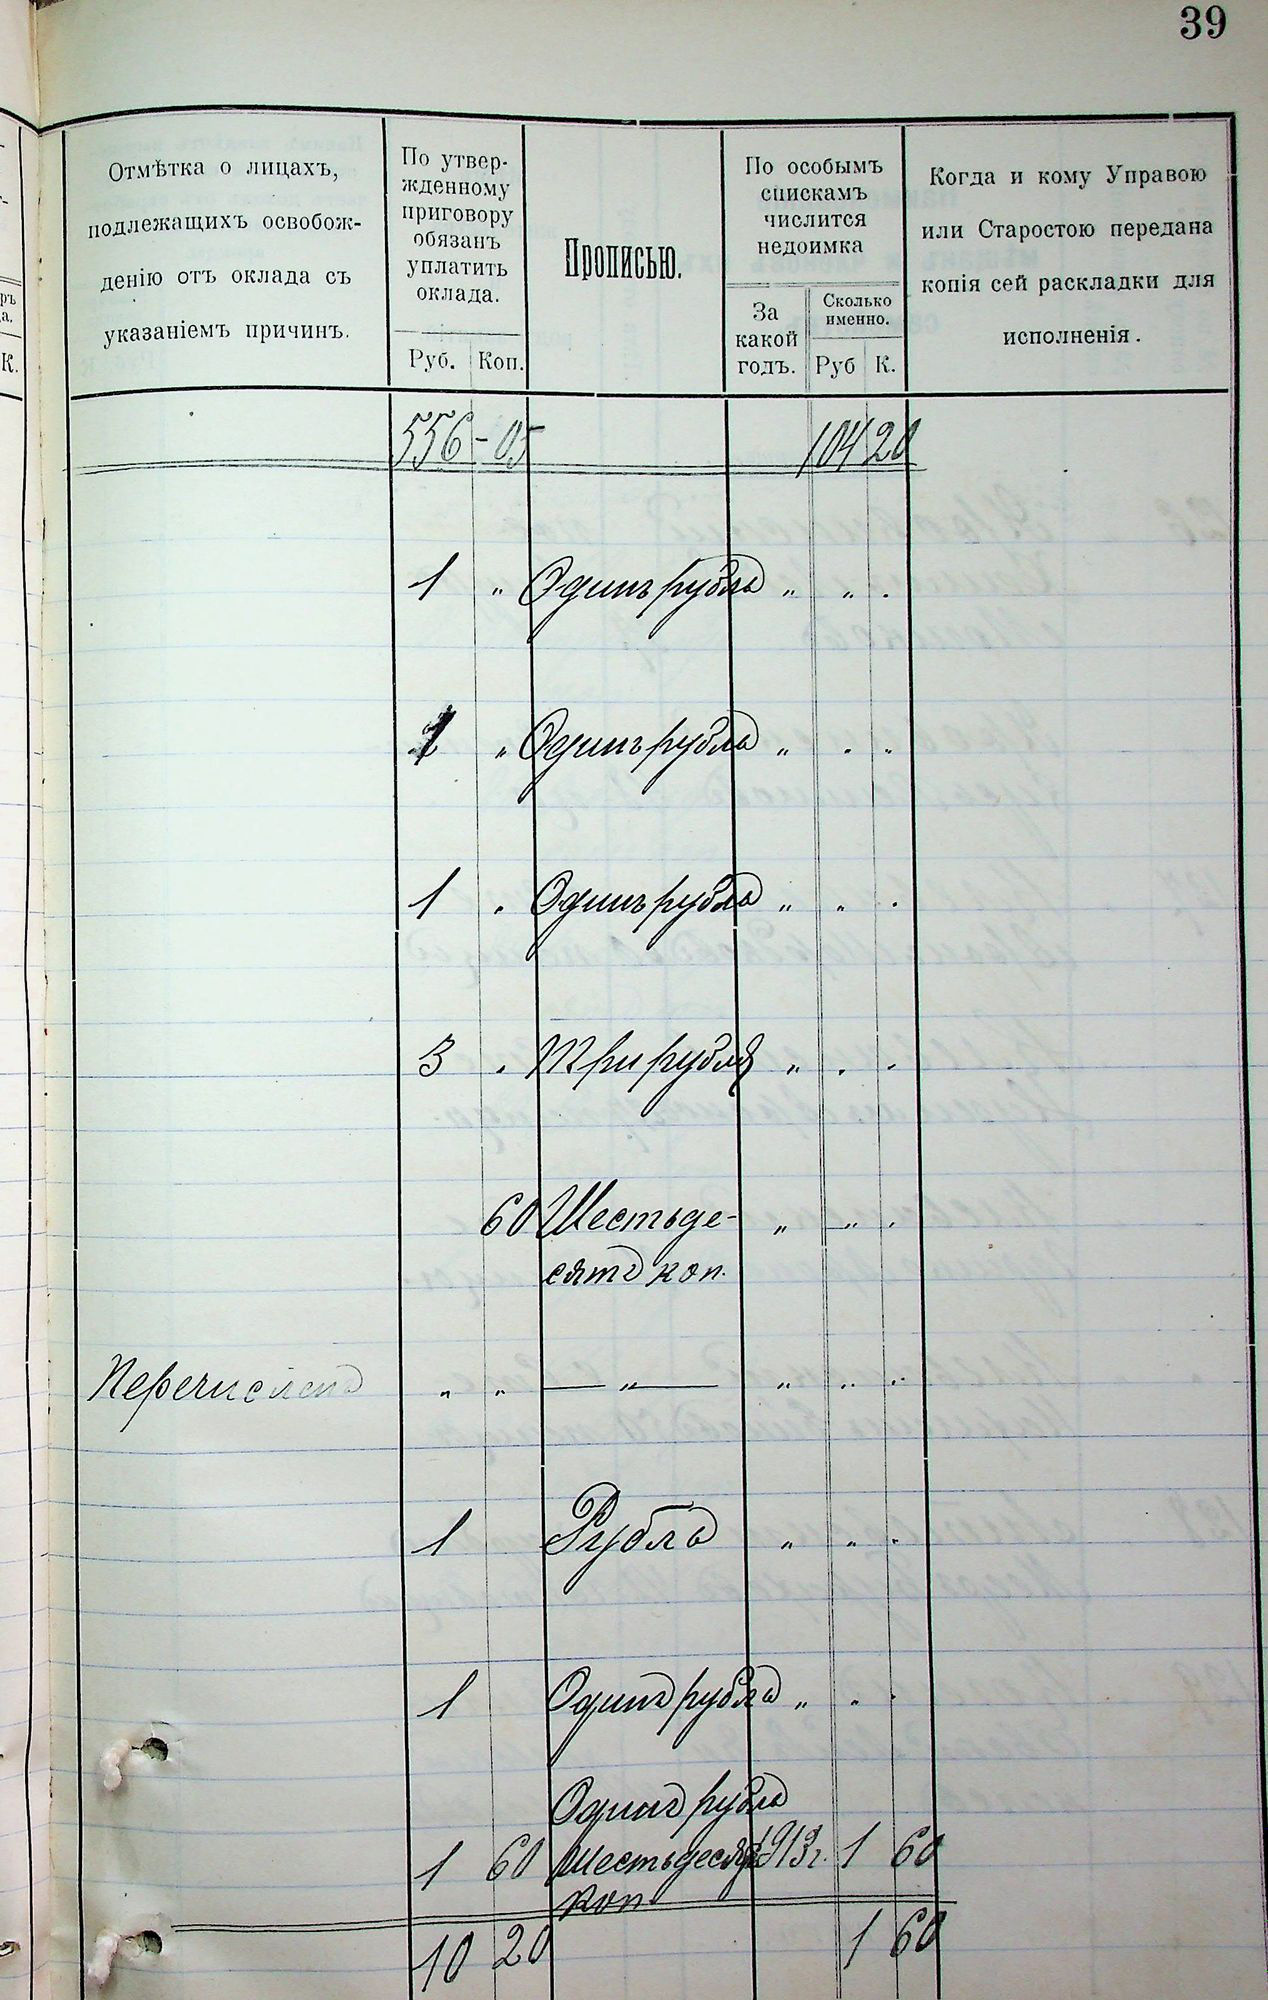 39
Отмѣтка о лицахъ,
подлежащихъ освобож-
денію отъ оклада съ
указаніемъ причинъ.
По утвер-
жденному
приговору
обязанъ
уплатить
оклада.
Руб. Коп.
Прописью.
По особымъ
спискамъ
числится
недоимка
За
какой
годъ.
Сколько
именно.
Руб К.
Когда и кому Управою
или Старостою передана
копія сей раскладки для
исполненія.
556 - 05 104 20
1 „ Одинъ рубль „ „ .
1 „ Одинъ рубль „ . „
1 „ Одинъ рубль „ „ .
3 „ Три рубля „ . .
60 Шестьде- „ „ .
сятъ коп.
Перечисленъ „ „ — „ — „ „ „
1 Рубль „ „ .
1 Одинъ рубль „ . .
Одинъ рубль
1 60 Шестьдесятъ 1913 г. 1 60
коп
10 20 1 60
ръ
а.
К.